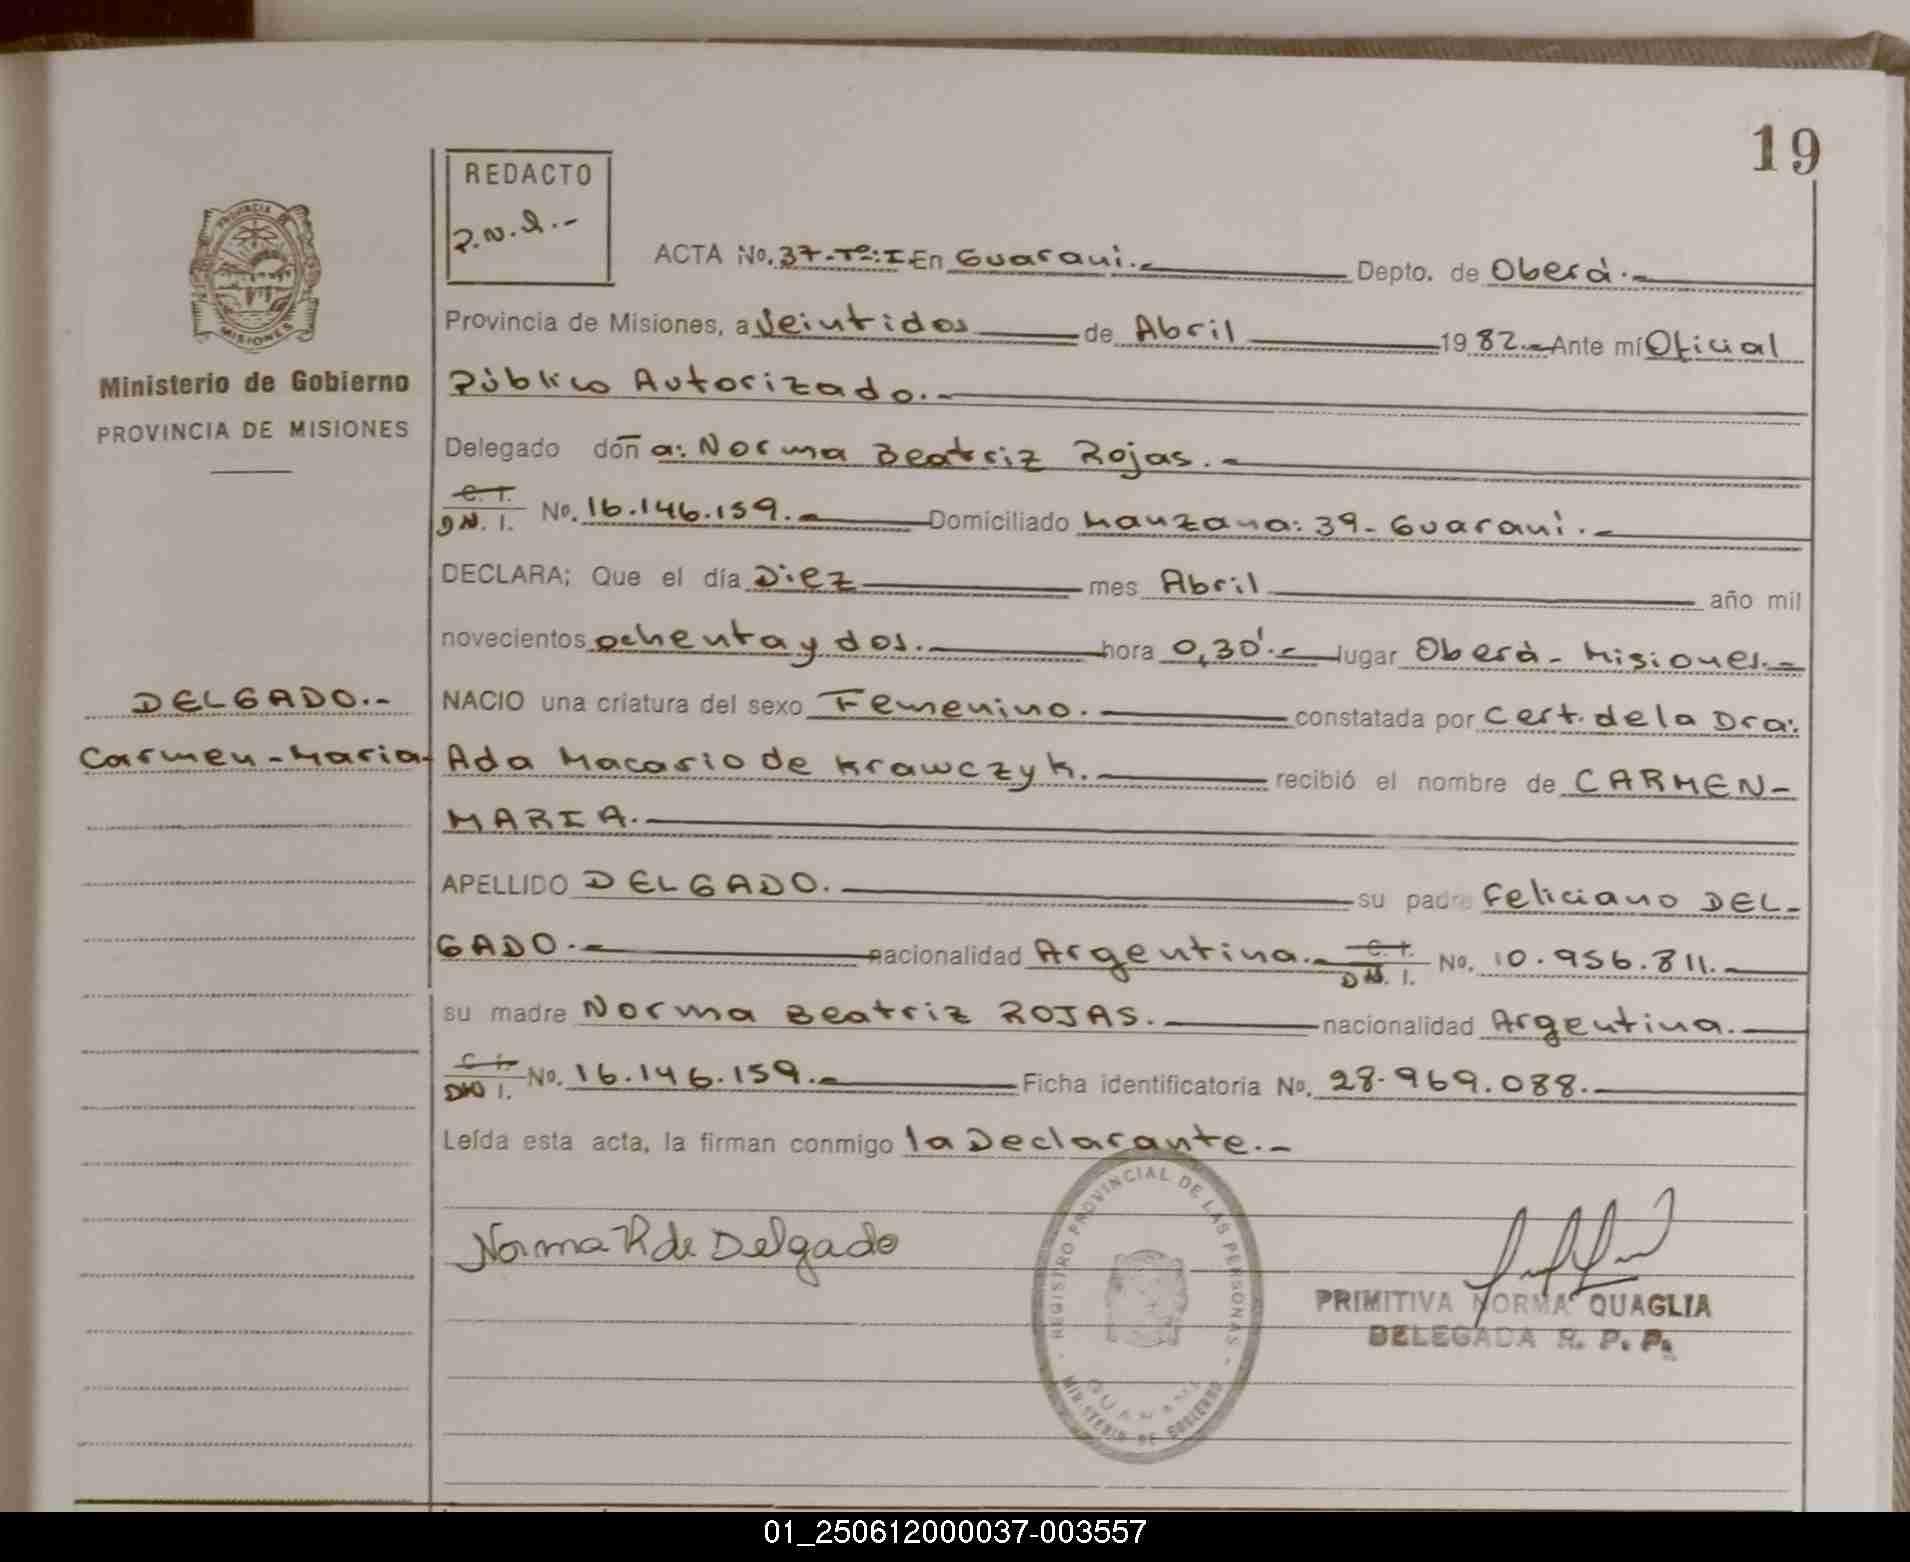 19
REDACTO
P.N.Q.-
PROVINCIA
MISIONES
ACTA No. 37-Tº:I En Guarani.- Depto. de Oberá.-
Provincia de Misiones, a Veintidos de Abril 1982.- Ante mí Oficial
Ministerio de Gobierno
Público Autorizado.-
PROVINCIA DE MISIONES
Delegado doña: Norma Beatriz Rojas.-
C. I.
D N. I. No. 16.146.159.- Domiciliado Manzana: 39- Guarani.-
DECLARA; Que el día Diez mes Abril año mil
novecientos ochenta y dos.- hora 0,30'.- lugar Oberá- Misiones.-
DELGADO.-
NACIO una criatura del sexo Femenino.- constatada por Cert. de la Dra:
Carmen-Maria-
Ada Macario de Krawczyk.- recibió el nombre de CARMEN-
MARIA.-
APELLIDO DELGADO.- su padre Feliciano DEL-
GADO.- nacionalidad Argentina.- C. I. D N. I. No. 10.956.811.-
su madre Norma Beatriz ROJAS.- nacionalidad Argentina.-
C. I.
DN I. No. 16.146.159.- Ficha identificatoria No. 28.969.088.-
Leída esta acta, la firman conmigo la Declarante.-
REGISTRO PROVINCIAL DE LAS PERSONAS
Norma R de Delgado
PRIMITIVA NORMA QUAGLIA
DELEGADA R. P. P.
GUARANI
MINISTERIO DE GOBIERNO
01_250612000037-003557